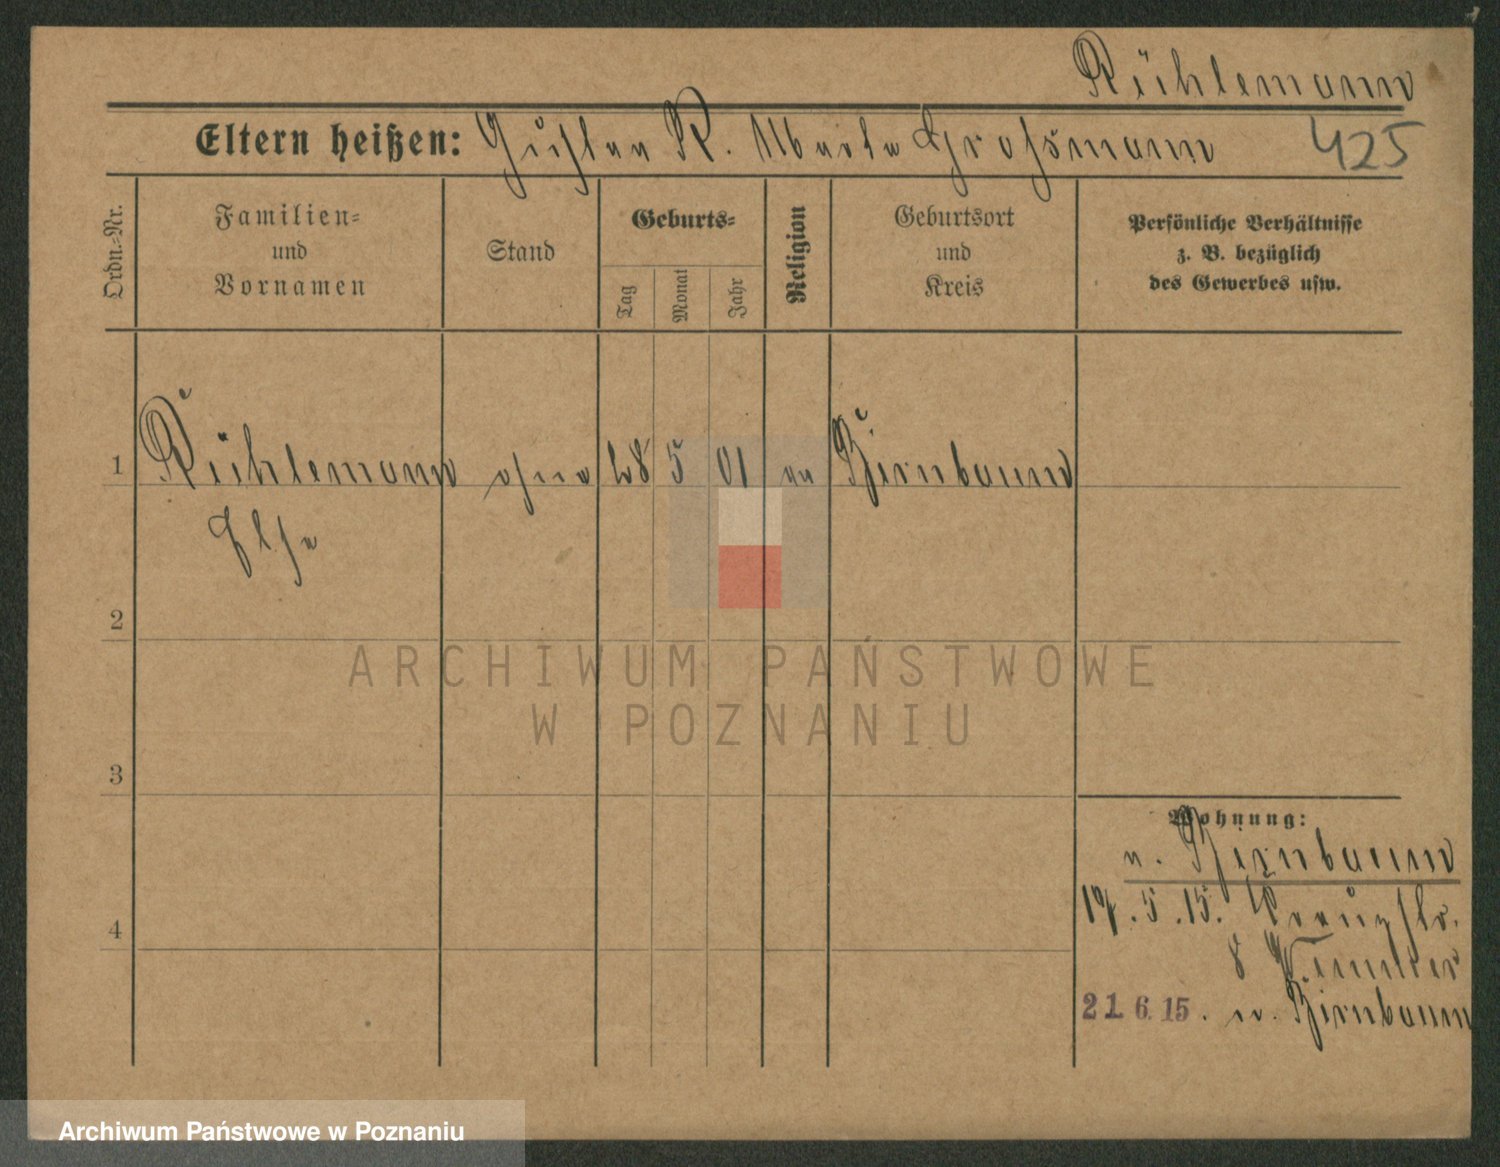 Rühlemann
Eltern heißen: Gustav R. Marta Großmann 425
Ordn.-Nr.
Familien-
und
Vornamen
Stand
Geburts-
Tag
Monat
Jahr
Religion
Geburtsort
und
Kreis
Persönliche Verhältnisse
z. B. bezüglich
des Gewerbes usw.
1 Rühlemann ohne 28 5 01 ev Birnbaum
Else
2
ARCHIWUM PAŃSTWOWE
W POZNANIU
3
Wohnung:
v. Birnbaum
17.5.15. Kreuzstr.
8
4
21.6.15. n. Birnbaum
Archiwum Państwowe w Poznaniu